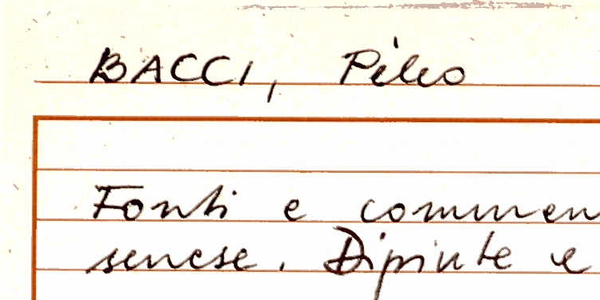 BACCI, Pèleo
Fonti e commen
senese. Dipinte e